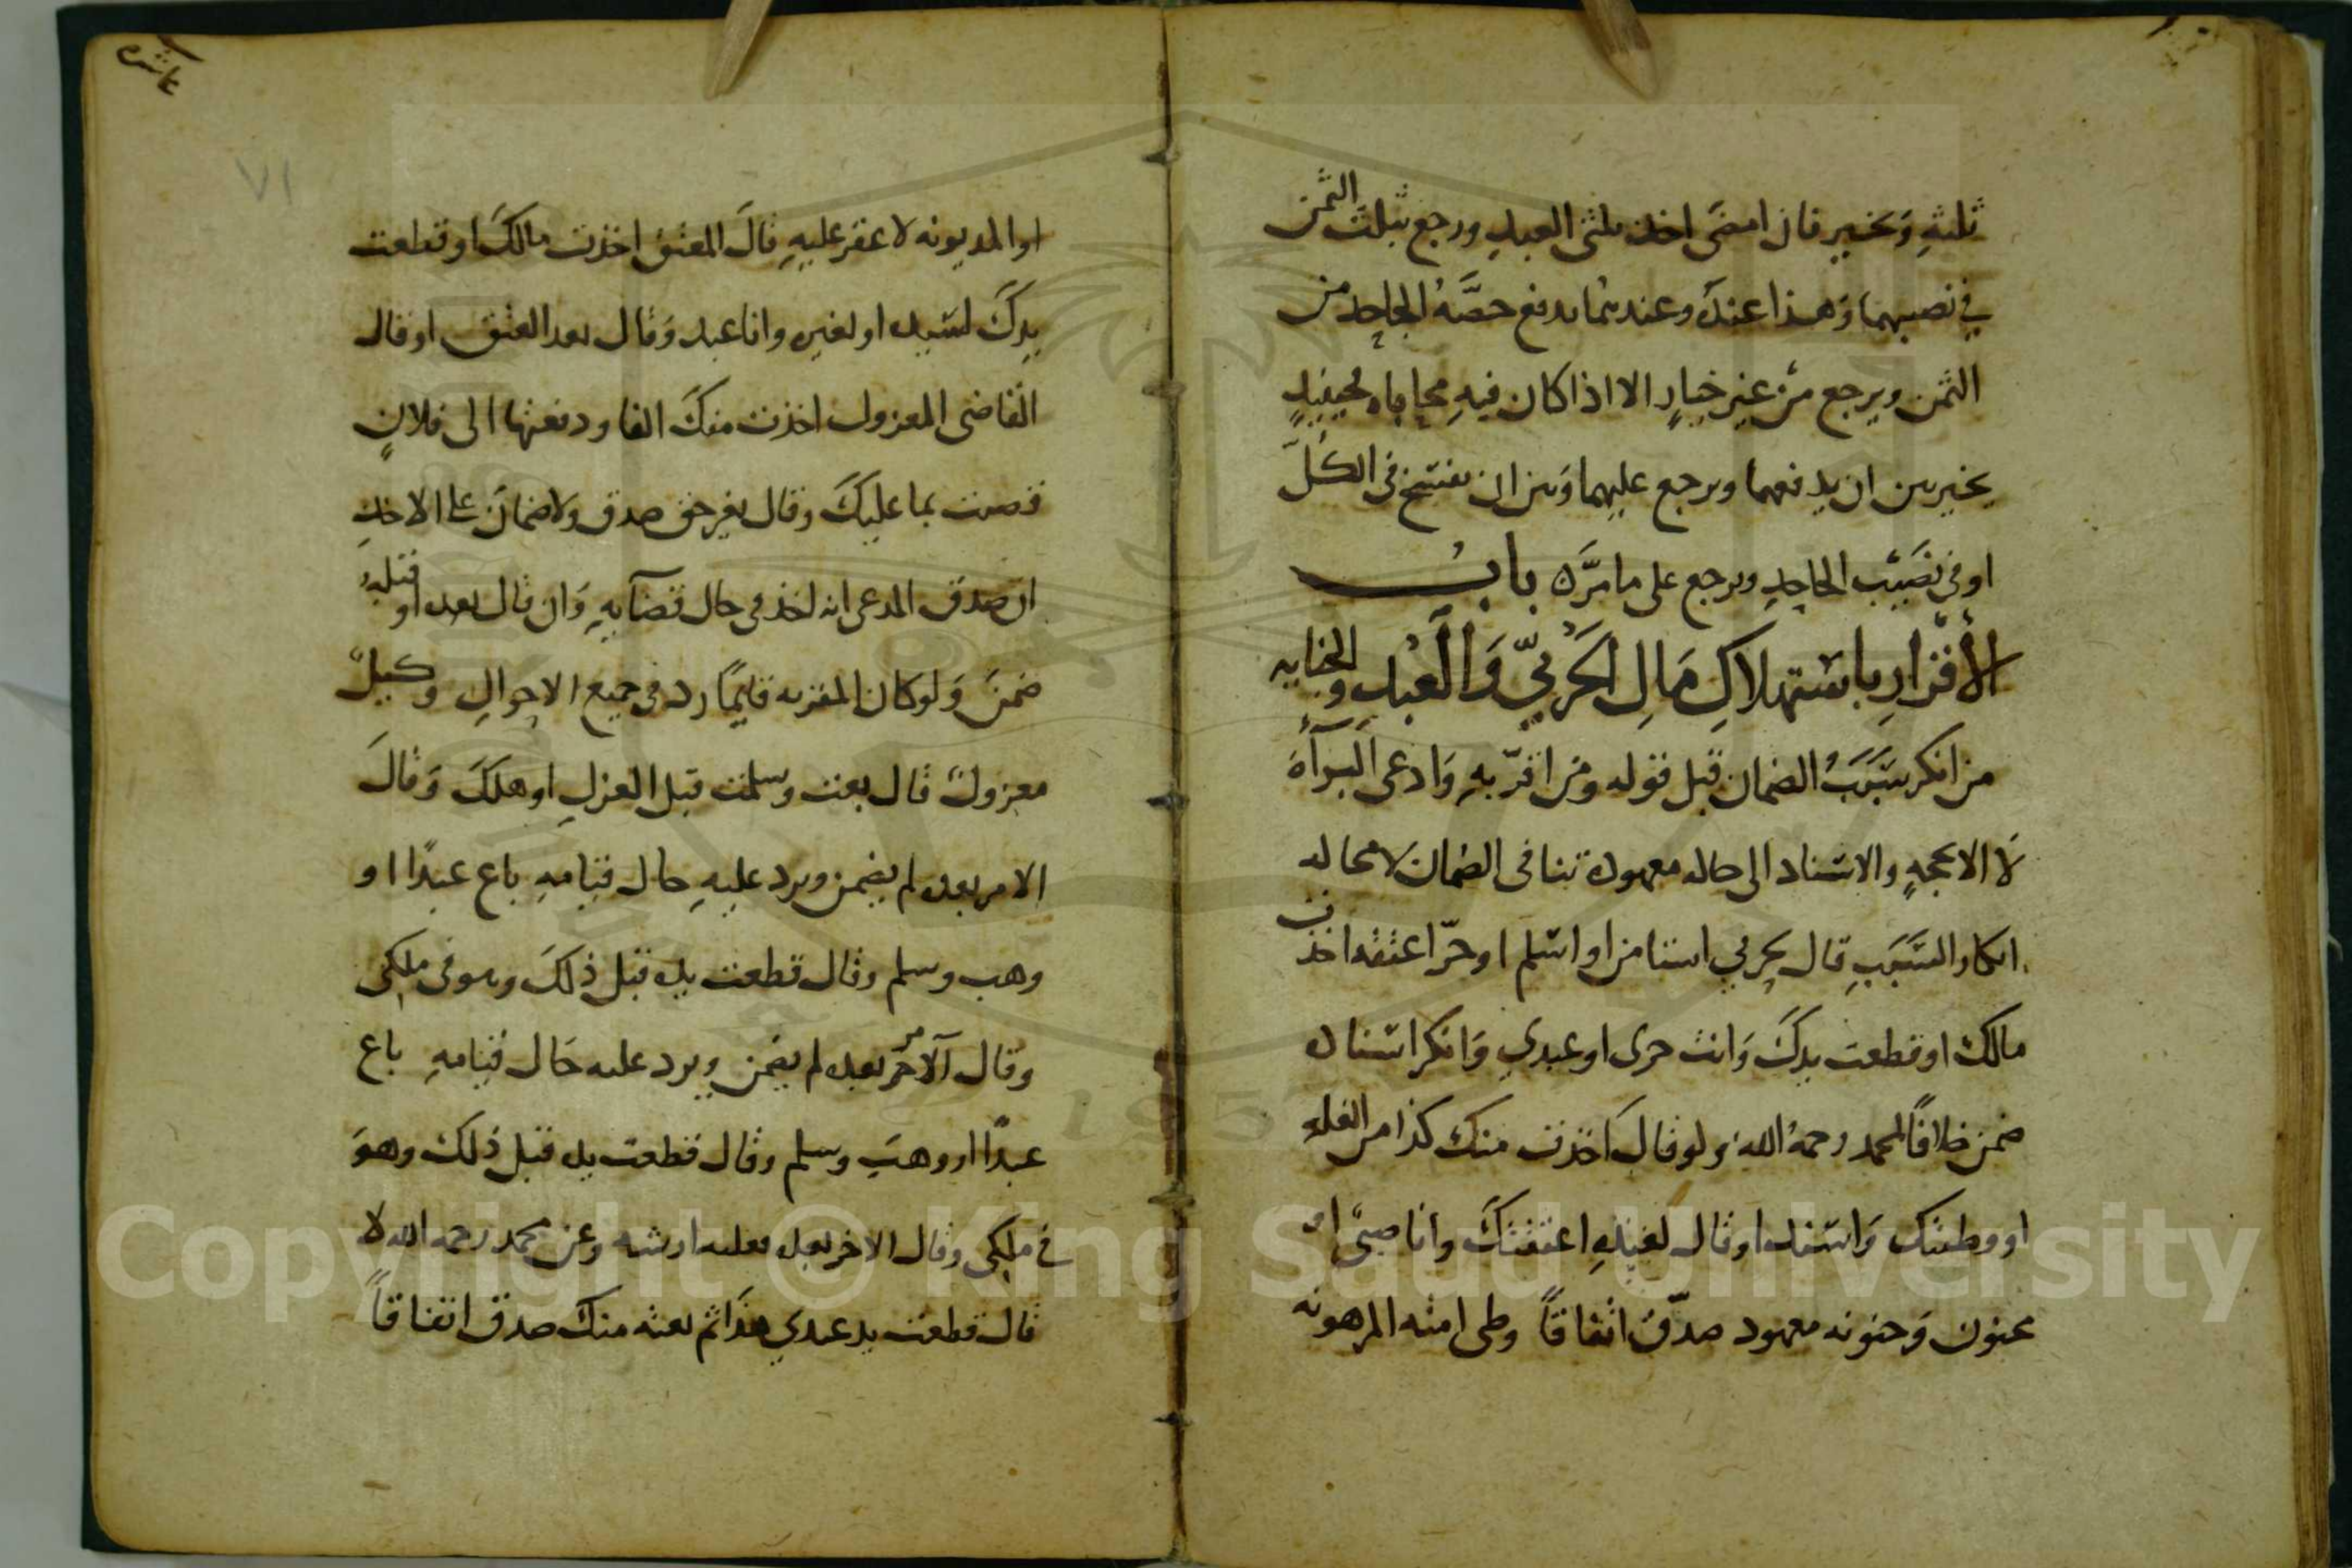 ثلثه وتخير فان امضى اخذ ثلثى العبد ورجع بثلث الثمن
في نصيبهما وهذا عنده وعندهما يدفع حصه الجاحد من
الثمن ويرجع من غير خيار الا اذا كان فيه محاباه فحينئذ
يخير بين ان يدفعهما ويرجع عليهما وبين ان يفسخ فى الكل
او فى نصيب الجاحد ويرجع على ما مر باب
الاقرار باستهلاك مال الحربي والعبد والجنايه
من انكر سبب الضمان قبل قوله ومن اقر به وادعى البرآة
لا الا بحجه والاسناد الى حاله معهوده تنافى الضمان لا محاله
انكار السبب قال لحربي استامن او اسلم او حر اعتقه اخذت
مالك او قطعت يدك وانت حربى او عبدي وانكر اسناده
ضمن خلافا لمحمد رحمه الله ولو قال اخذت منك كذا من الغله
او وطئتك واسند او قال لعبده اعتقتك وانا صبى او
مجنون وجنونه معهود صدق اتفاقا وطى امته المرهونه
عاشره
٧١
او المديونه لا عقر عليه قال المعتق اخذت مالك او قطعت
يدك لسيده او لغيره وانا عبد وقال بعد العتق او قال
القاضى المعزول اخذت منك الفا ودفعتها الى فلان
قضيت بها عليك وقال بغير حق صدق ولا ضمان على الاخذ
ان صدق المدعى انه اخذ فى حال قضآيه وان قال بعده او قبله
ضمن ولو كان المقر به قايما رد فى جميع الاحوال وكيل
معزول قال بعت وسلمت قبل العزل او هلك وقال
الامر بعده لم يضمن ويرد عليه حال قيامه باع عبدا او
وهب وسلم وقال قطعت يده قبل ذلك وهو فى ملكى
وقال الآخر بعده لم يضمن ويرد عليه حال قيامه باع
عبدا او وهب وسلم وقال قطعت يده قبل ذلك وهو
في ملكى وقال الاخر بعده فعليه ارشه وعن محمد رحمه الله لا
قال قطعت يد عبدي هذا ثم بعته منك صدق اتفاقا
Copyright © King Saud University
1957